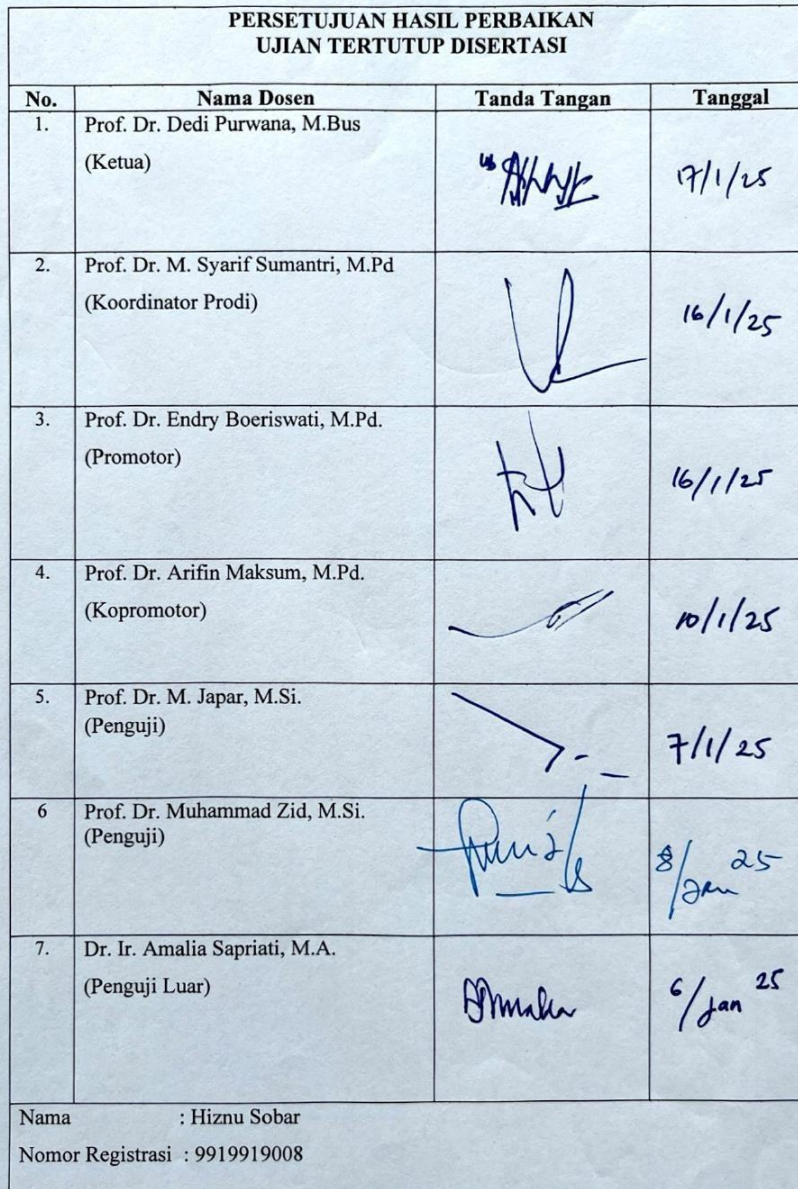 PERSETUJUAN HASIL PERBAIKAN
UJIAN TERTUTUP DISERTASI
No. Nama Dosen Tanda Tangan Tanggal
1. Prof. Dr. Dedi Purwana, M.Bus
(Ketua)
17/1/25
2. Prof. Dr. M. Syarif Sumantri, M.Pd
(Koordinator Prodi)
16/1/25
3. Prof. Dr. Endry Boeriswati, M.Pd.
(Promotor)
16/1/25
4. Prof. Dr. Arifin Maksum, M.Pd.
(Kopromotor)
10/1/25
5. Prof. Dr. M. Japar, M.Si.
(Penguji)
7/1/25
6 Prof. Dr. Muhammad Zid, M.Si.
(Penguji)
8/Jan 25
7. Dr. Ir. Amalia Sapriati, M.A.
(Penguji Luar)
6/Jan 25
Nama : Hiznu Sobar
Nomor Registrasi : 9919919008